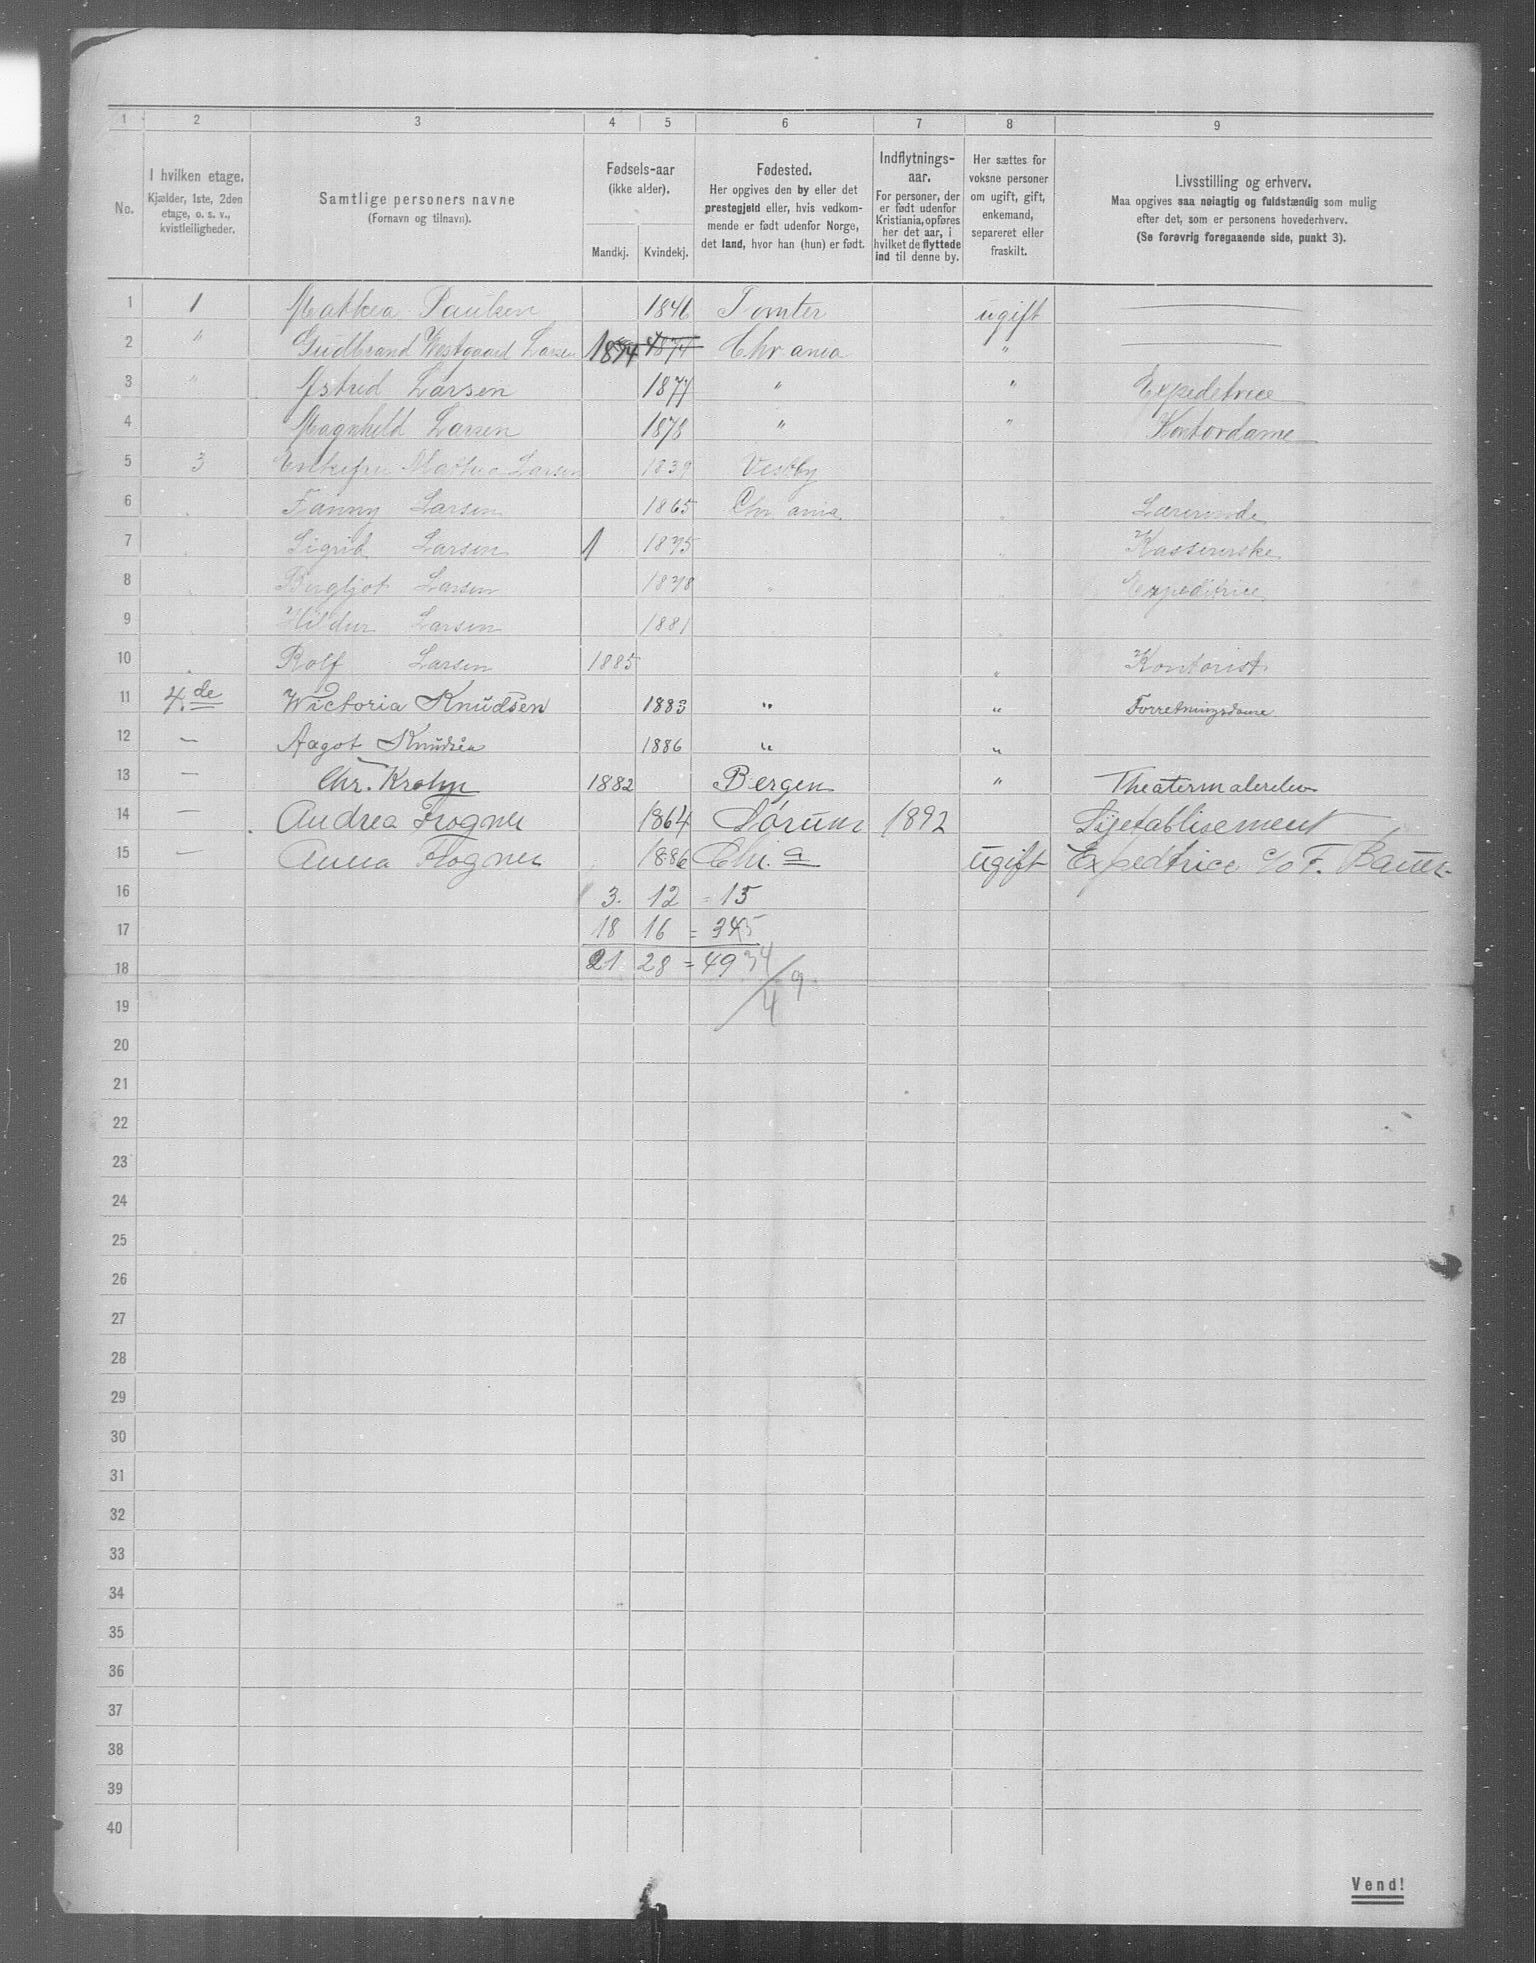 1 2 3 4 5 6 7 8 9
No.
I hvilken etage.
Kjælder, 1ste, 2den
etage, o. s. v.,
kvistleiligheder.
Samtlige personers navne
(Fornavn og tilnavn).
Fødsels-aar
(ikke alder).
Mandkj. Kvindekj.
Fødested.
Her opgives den by eller det
prestegjeld eller, hvis vedkom-
mende er født udenfor Norge,
det land, hvor han (hun) er født.
Indflytnings-
aar.
For personer, der
er født udenfor
Kristiania, opføres
her det aar, i
hvilket de flyttede
ind til denne by.
Her sættes for
voksne personer
om ugift, gift,
enkemand,
separeret eller
fraskilt.
Livsstilling og erhverv.
Maa opgives saa nøiagtig og fuldstændig som mulig
efter det, som er personens hovederhverv.
(Se forøvrig foregaaende side, punkt 3).
1 1 Paulsen 1846 Tomter ugift
2 " Gudbrand Westgaard Larsen 1874 1874 Chr ania "
3 " Astrid Larsen 1877 " " Expeditrice
4 Magnhild Larsen 1878 " " Kontordame
5 3 Enkefru Larsen 1839 Vestby
6 Fanny Larsen 1865 Chr ania Lærerinde
7 Sigrid Larsen 1 1875 Kasserske
8 Bergljot Larsen 1878 " Expeditrice
9 Hildur Larsen 1881
10 Rolf Larsen 1885 " Kontorist
11 4.de Wictoria Knudsen 1883 " " Forretningsdame
12 — Aagot Knudsen 1886 " "
13 — Chr. Krohn 1882 Bergen " Theatermalerelev
14 — Andrea Frogner 1864 Sørum 1892 Syetablisement
15 — Anna Frogner 1886 Chr.a ugift Expedtrice c/o F. Bauer
16 3. 12 = 15
17 18 16 = 345
18 21 28 = 49 34
19 4 9
20
21
22
23
24
25
26
27
28
29
30
31
32
33
34
35
36
37
38
39
40
Vend!